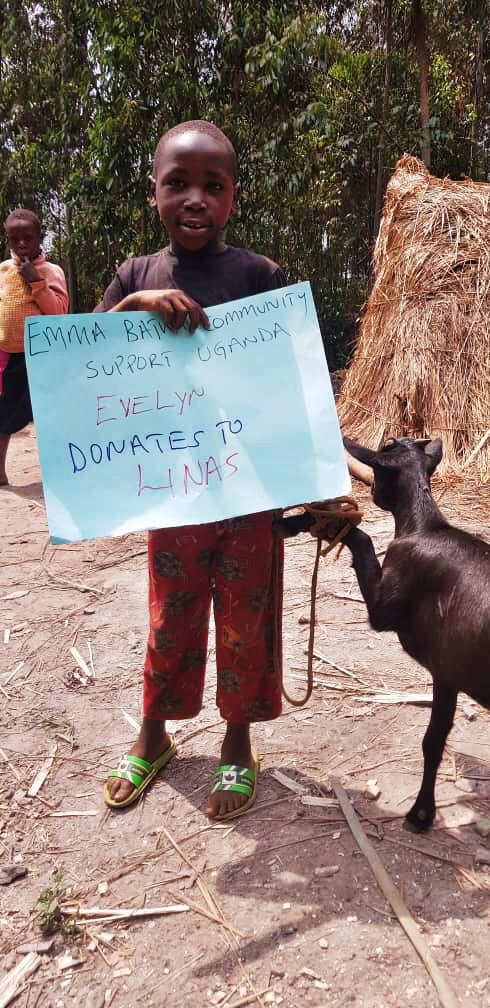 EMMA BATWA COMMUNITY
SUPPORT UGANDA
EVELYN
DONATES TO
LINAS